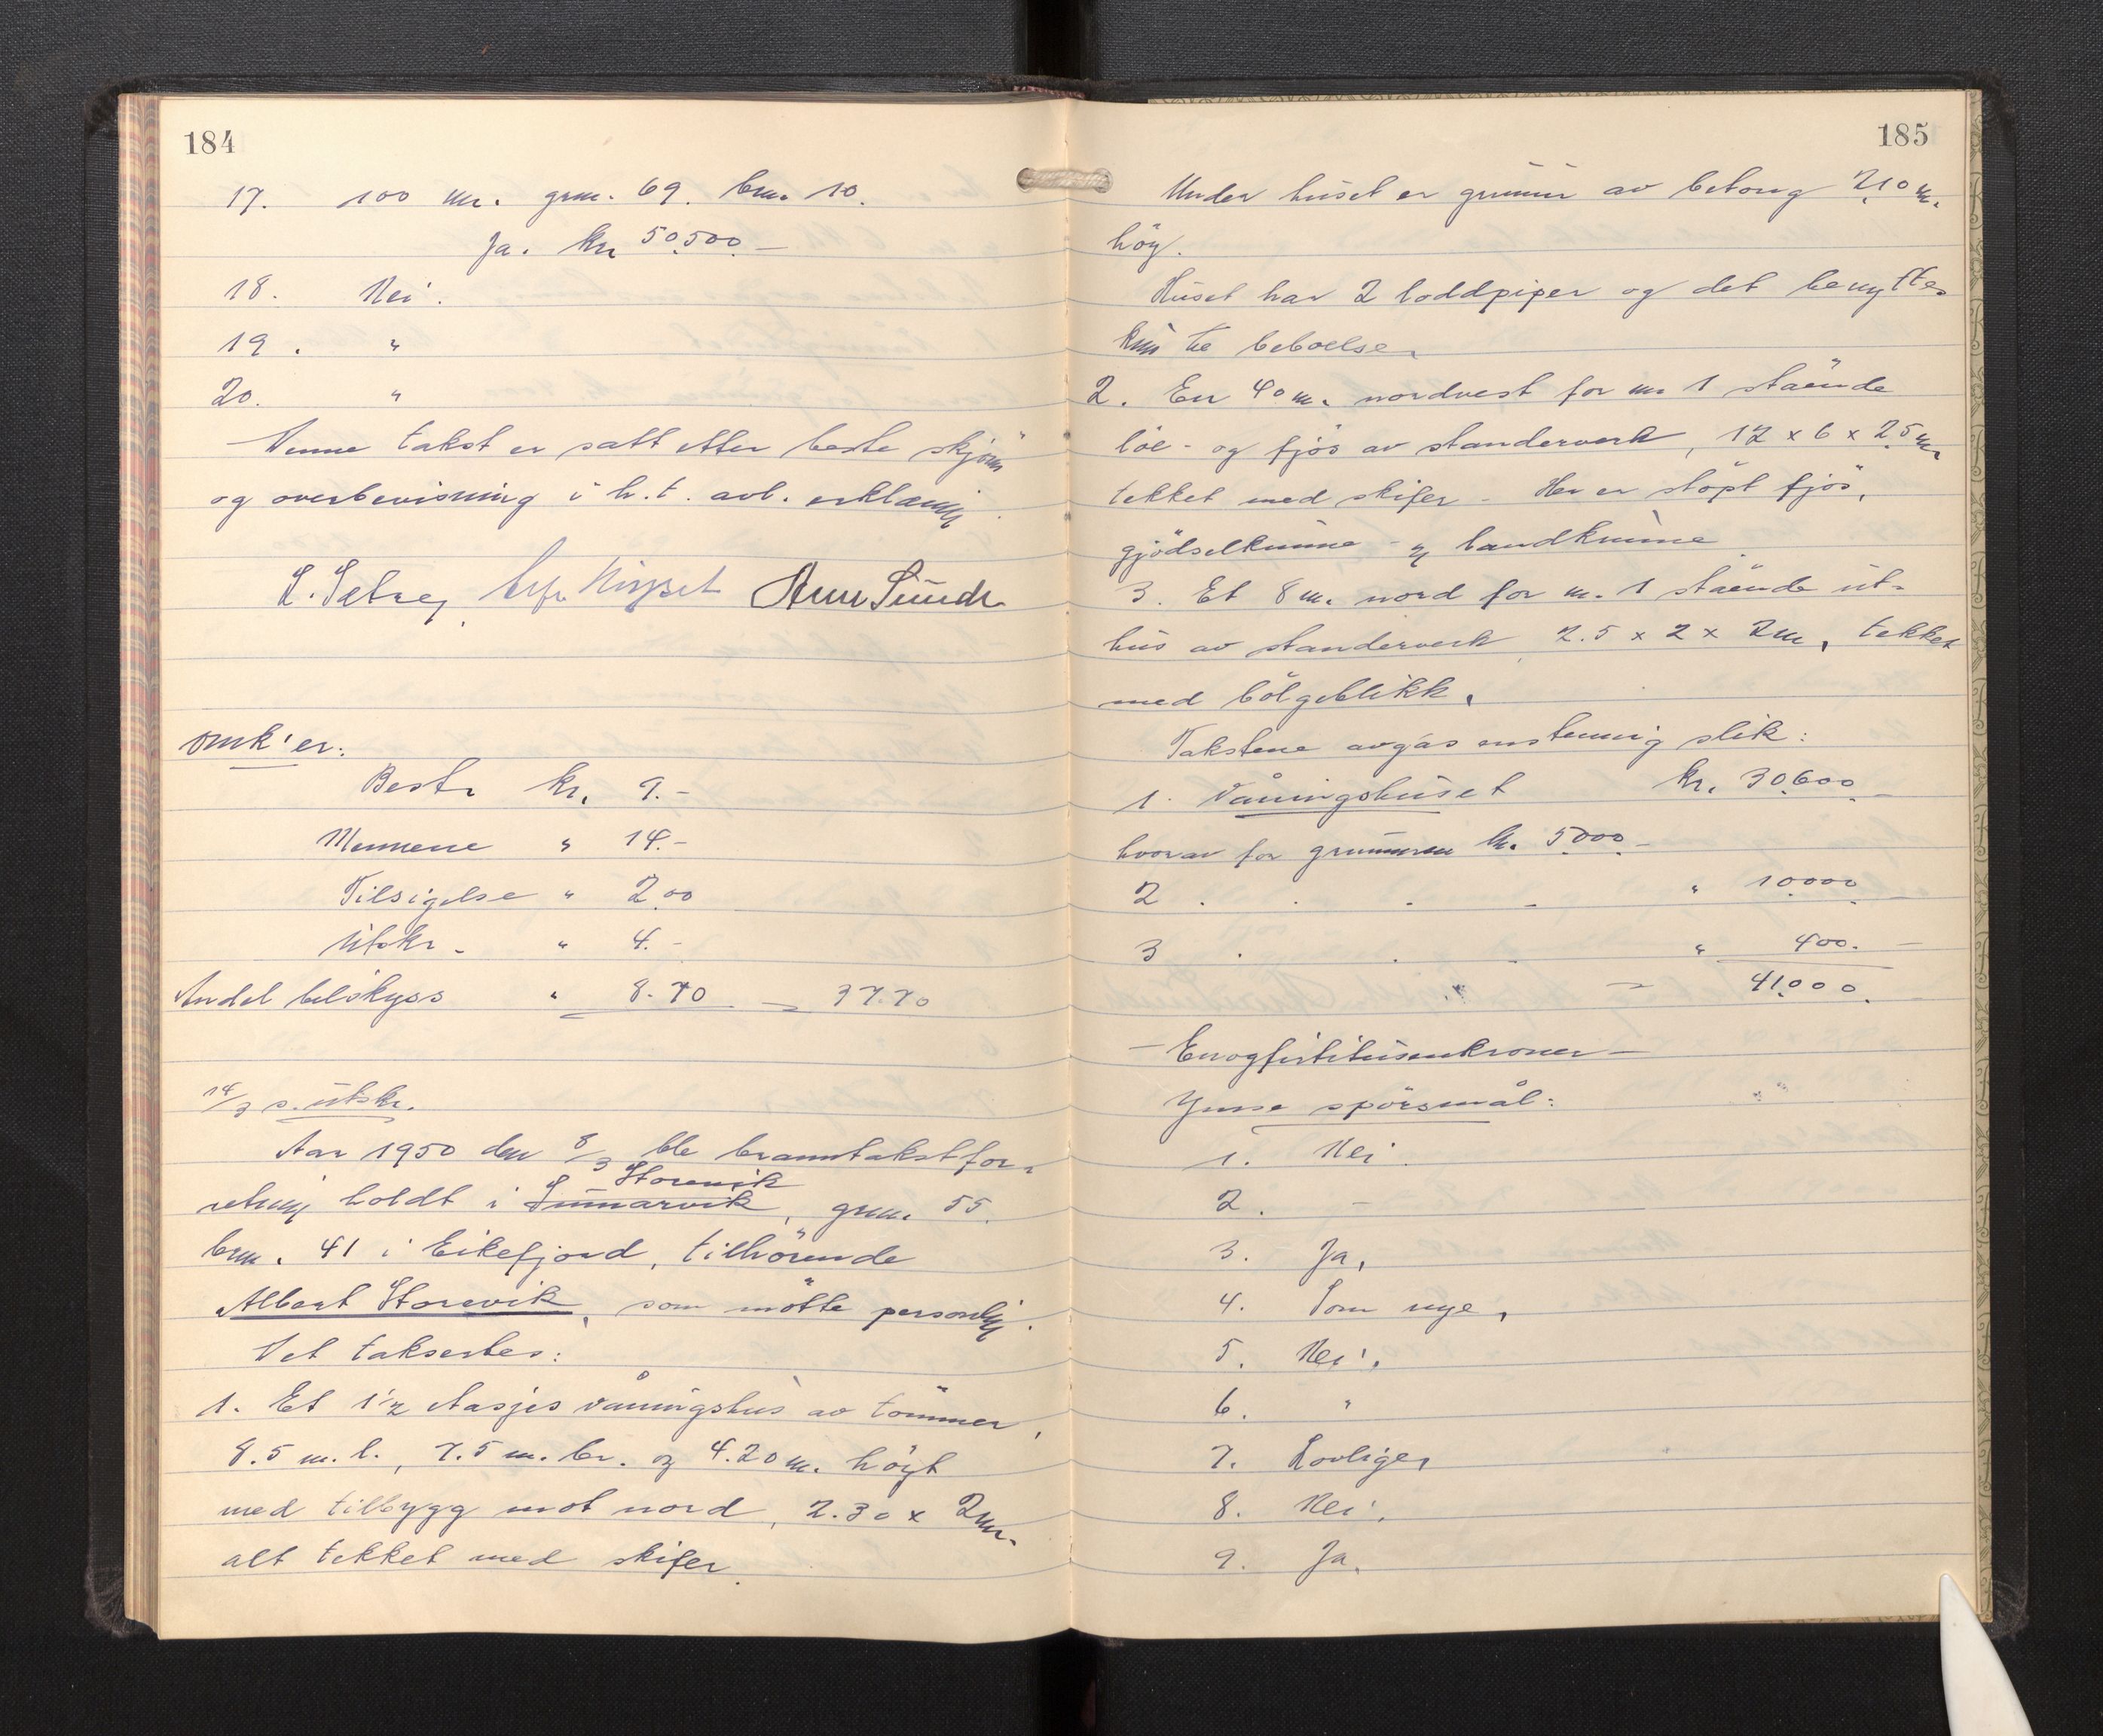 184
17. 100 m. grm. 69. brn. 10.
Ja. kr 50.500.-
18. Nei.
19. "
20. "
Denne takst er satt etter beste skjønn
og overbevisning i h.t. avl. erklæring.
L. Sætrey
omk'er:
Best. kr. 9.-
Mennene " 14.-
Tilsigelse " 2.00
Utskr. " 4.-
Andel bilskyss " 8.70 = 37.70
14/3 s. utskr.
Aar 1950 den 8/3 ble branntakstfor-
Storevik
retning holdt i Sunnarvik, grn. 55.
brn. 41 i Eikefjord, tilhörende
Albert Storevik, som møtte personlig.
Det taksertes:
1. Et 1½ etasjes våningshus av tömmer,
8.5 m. l., 7.5 m. br. og 4.20 m. höyt
med tilbygg mot nord, 2.30 x 2 m.
alt tekket med skifer.
185
Under huset er grunnur av betong 2.10 m.
höy.
Huset har 2 loddpiper og det benyttes
kun til beboelse.
2. En 40 m. nordvest for nr 1 stående
löe- og fjös av standerverk, 12 x 6 x 2.5 m.
tekket med skifer - Her er støpt fjös,
gjödselkumme og landkumme.
3. Et 8 m. nord for nr. 1 stående ut-
hus av standerverk 2.5 x 2 x 2 m, tekket
med bölgeblikk.
Takstene avgås enstemmig slik:
1. Våningshuset kr. 30.600.-
hvorav for grunnuren kr. 5.000.-
2 . . . - " 10.000.-
3 . . - " 400.-
= 41.000.-
- Enogførtitusenkroner -
Ymse spörsmål:
1. Nei.
2. -
3. Ja.
4. Som nye.
5. Nei.
6. "
7. Lovlige.
8. Nei.
9. Ja.